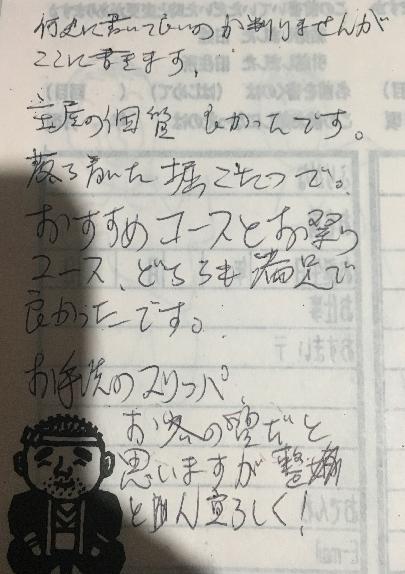 何処に書いて良いのか判りませんが
ここに書きます、
の個質 良かったです。
落ち着いた掘ごたつで。
おすすめコースとお
コース、どちらも満足で
良かったーです。
お手洗のスリッパ、
お客の質だと
思いますが整
と 宜ろしく!